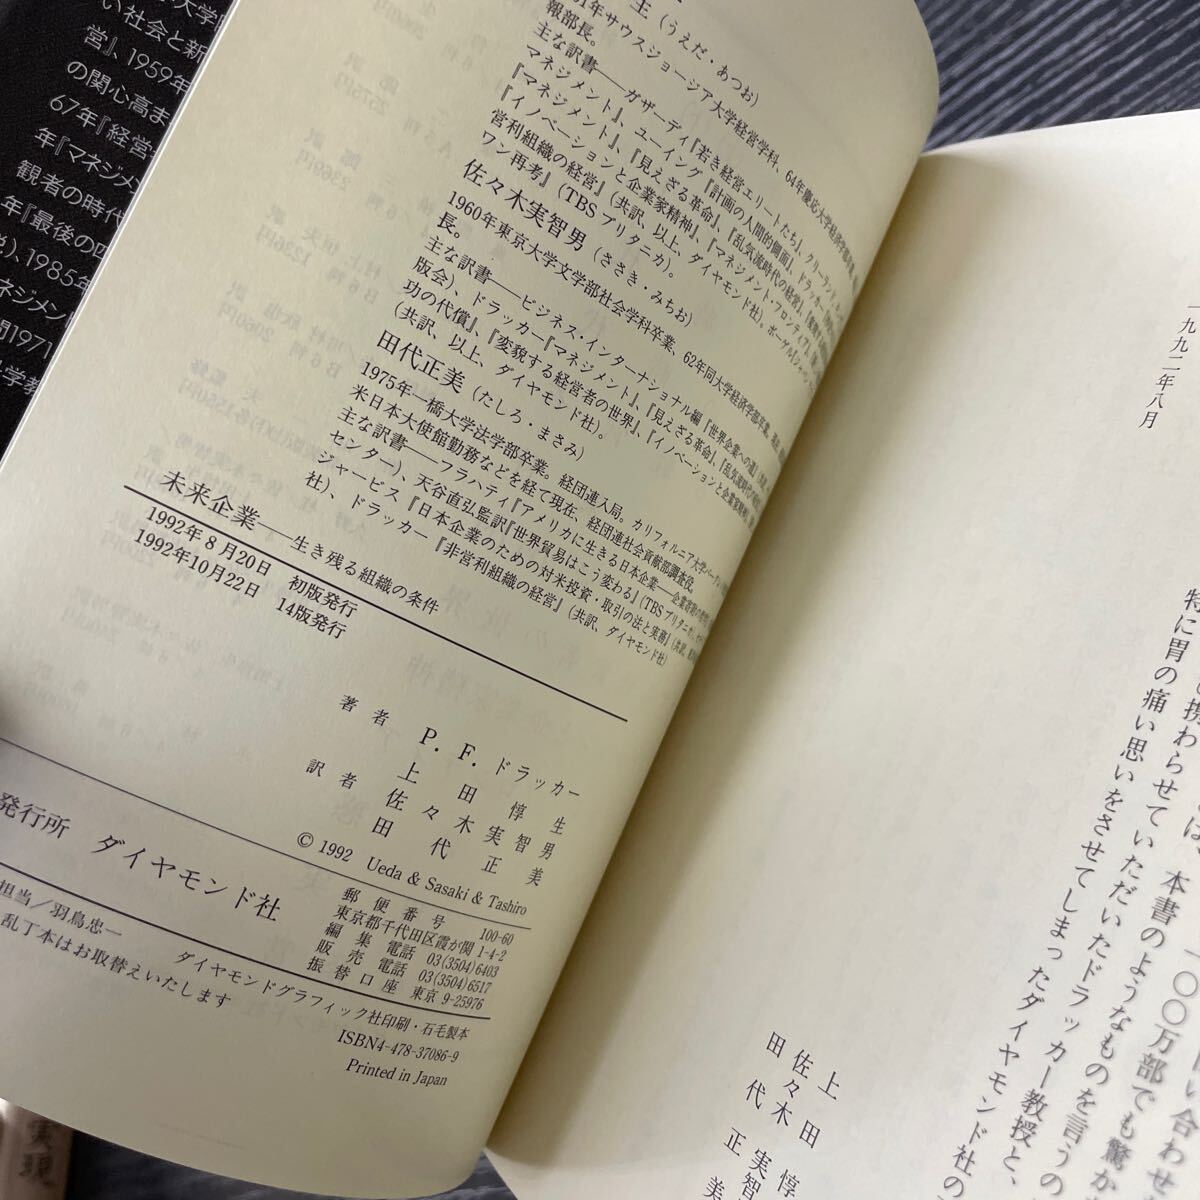 い社会と新
営』、1959年
の関心高ま
67年『経営
年『マネジメン
観者の時代
年『最後の四
1985年
ネジメン
1971
大学教
（うえだ・あつお）
61年サウスジョージア大学経営学科、64年慶応大学経済学部卒業。
報部長。
主な訳書――ガザーディ『若き経営エリートたち』、クリーランド
マネジメント』、ユーイング『計画の人間的側面』、ドラッカー
『マネジメント』、『見えざる革命』、『乱気流時代の経営』、
『イノベーションと企業家精神』、『マネジメント・フロンティア』、
営利組織の経営』（共訳、以上、ダイヤモンド社）。ボーゲル『ジャパン
ワン再考』（TBSブリタニカ）。
佐々木実智男（ささき・みちお）
1960年東京大学文学部社会学科卒業、62年同大学経済学部卒業。
長。
主な訳書――ビジネス・インターナショナル編『世界企業への道』
版会）、ドラッカー『マネジメント』、『見えざる革命』、『乱気流時代の経営』、
功の代償』、『変貌する経営者の世界』、『イノベーションと企業家精神』
（共訳、以上、ダイヤモンド社）。
田代正美（たしろ・まさみ）
1975年一橋大学法学部卒業。経団連入局。カリフォルニア大学バークレー
米日本大使館勤務などを経て現在、経団連社会貢献部調査役。
主な訳書――フラハティ『アメリカに生きる日本企業――企業寄附の
センター）、天谷直弘監訳『世界貿易はこう変わる』（TBSブリタニカ）、
ジャービス『日本企業のための対米投資・取引の法と実務』（共訳、
社）、ドラッカー『非営利組織の経営』（共訳、ダイヤモンド社）
未来企業――生き残る組織の条件
1992年8月20日　初版発行
1992年10月22日　14版発行
著者　P. F. ドラッカー
上田惇生
訳者　佐々木実智男
田代正美
© 1992 Ueda & Sasaki & Tashiro
発行所　ダイヤモンド社
郵便番号　100-60
東京都千代田区霞が関1-4-2
編集　電話　03(3504)6403
販売　電話　03(3504)6517
振替口座　東京 9-25976
担当／羽鳥忠一　ダイヤモンドグラフィック社印刷・石毛製本
乱丁本はお取替えいたします
ISBN4-478-37086-9
Printed in Japan
は、本書のようなものを言うの
一〇〇万部でも驚か
携わらせていただいたドラッカー教授と、
特に胃の痛い思いをさせてしまったダイヤモンド社の
一九九二年八月
上田惇生
佐々木実智
田代正美
実現